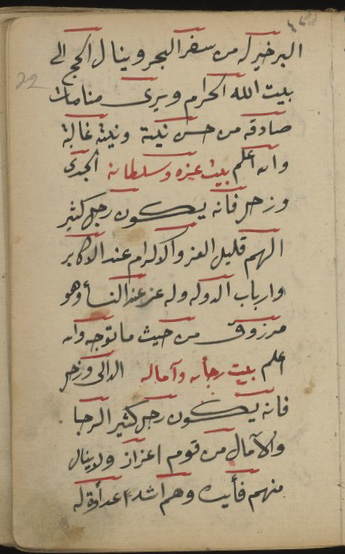 البر خير له من سفر البحر وينال الحج الى
بيت الله الحرام ويرى منامات
صادقه من حسن نية ونيته غالبة
والله اعلم بيت عزه وسلطانه الجدى
وزحل فانه يكون رجل كثير
الهم قليل العز والاكرام عند الاكابر
وارباب الدوله وله عز عند النساء وهو
مرزوق من حيث ما توجه والله
اعلم بيت رجائه وآماله الدالى وزحل
فانه يكون رجل كثير الرجا
والآمال من قوم اعزاز ولا ينال
منهم فائده وهم اشد اعداوة له
22